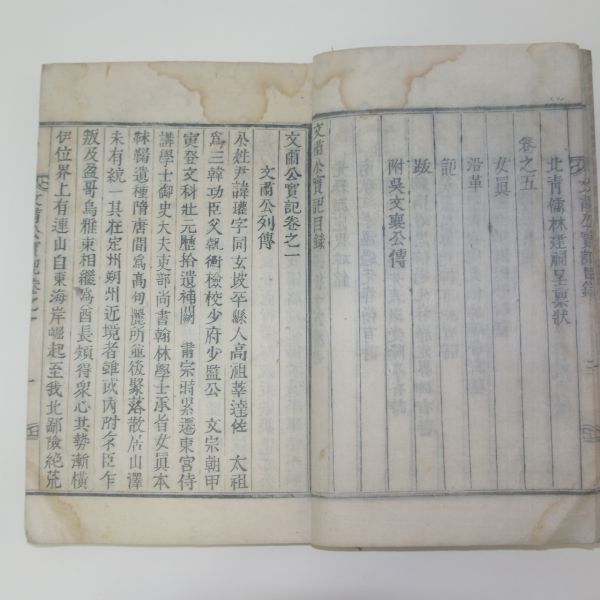 文肅公實記目錄 二
北青儒林建祠呈稟狀
卷之五
女眞
沿革
記
跋
附吳文襄公傳
文肅公實記目錄
文肅公實記卷之一
文肅公列傳
公姓尹諱瓘字同玄坡平縣人高祖莘達佐 太祖
爲三韓功臣父執衡檢校少府少監公 文宗朝甲
寅登文科壯元歷拾遺補闕 肅宗時累遷東宮侍
講學士御史大夫吏部尚書翰林學士承旨女眞本
靺鞨遺種隋唐間爲高句麗所並後聚落散居山澤
未有統一其在定州朔州近境者雖或內附乍臣乍
叛及盈哥烏雅束相繼爲酋長頗得衆心其勢漸橫
伊位界上有連山自東海岸崛起至我北鄙險絶荒
文肅公實記卷之一 一